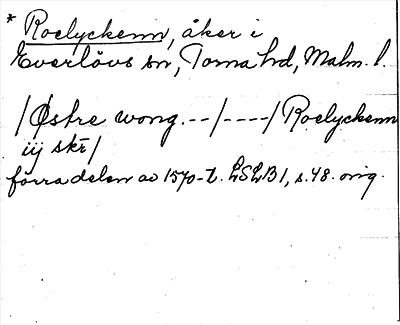 * Roelyckenn, åker i
Everlövs sn, Torna hd, Malm. l.
/Østre wong.--/----/Roelyckenn
iij skr/
förra delen av 1570-t. LSLB1, s.48. orig.